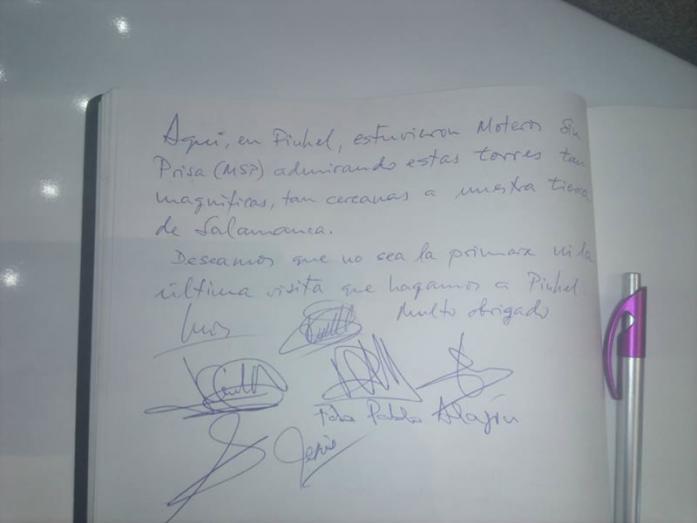 Aquí, en Pinhel, estuvieron Moteros Sin
Prisa (MSP) admirando estas torres tan
magníficas, tan cercanas a nuestra tierra
de Salamanca.
Deseamos que no sea la primera ni la
última visita que hagamos a Pinhel
Muito obrigado
Luis
Pablo